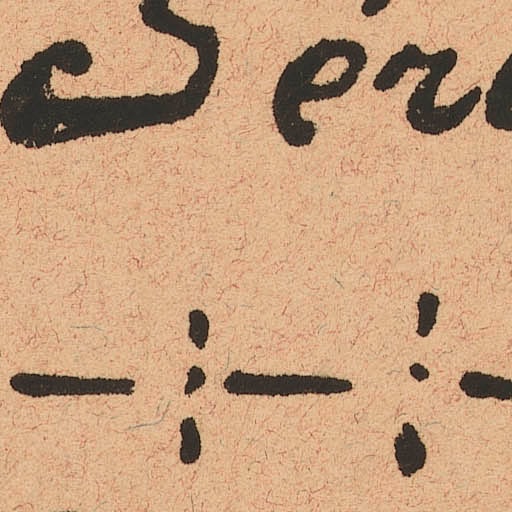 Sér